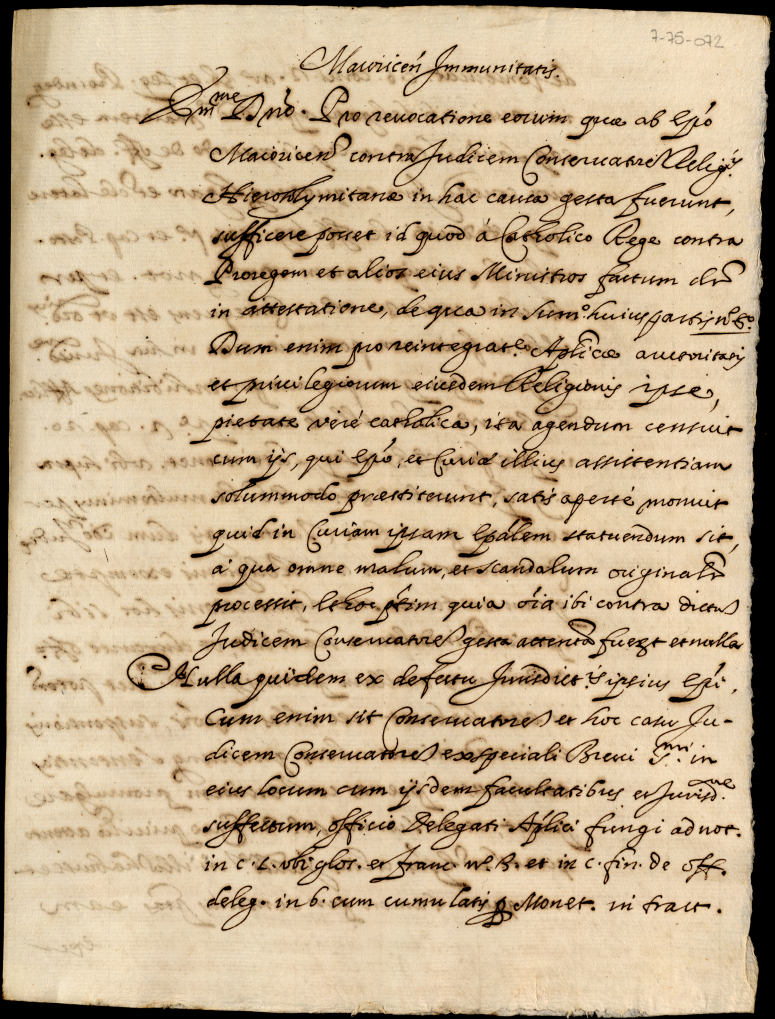 7-75-072
Maioricen̄ Immunitatis.
Em̄me Dn̄o. Pro revocatione eorum quæ ab Ep̄o
Maioricen̄ contra Judicem Conservatorē Relig.s
Hierosolymitanæ in hac causa gesta fuerunt,
sufficere posset id quod á Catholico Rege contra
Proregem et alios eius Ministros factum dr̄
in attestatione, de qua in Sum.o huius partis n.o 6.o
Dum enim pro reintegrat.e Ap̄licæ auctoritatis
et privilegiorum eiusdem Religionis ipse,
pietate veré catholica, ita agendum censuit
cum ijs, qui Ep̄o, et Curiæ illius assistentiam
solummodo præstiterunt, satis aperté monuit
quid in Curiam ipsam Ep̄alem statuendum sit,
a' qua omne malum, et scandalum originalr̄
processit, et hoc p̄tim quia ōia ibi contra dictū
Judicem Conservatorē gesta attenta fuer̄t et nulla
Nulla quidem ex defectu Jurisdict.s ipsius Ep̄i,
Cum enim sit Conservatorē et hoc casu Ju-
dicem Conservatorē ex speciali Brevi S.mi in
eius locum cum ijsdem facultatibus et Jurisd.ne
suffectum, officio Delegati Ap̄lici fungi ad not.
in c. 1. ubi glos. et Franc. n.o 3. et in c. fin. de off.
deleg. in 6. cum cumulatis p Monet. in tract.